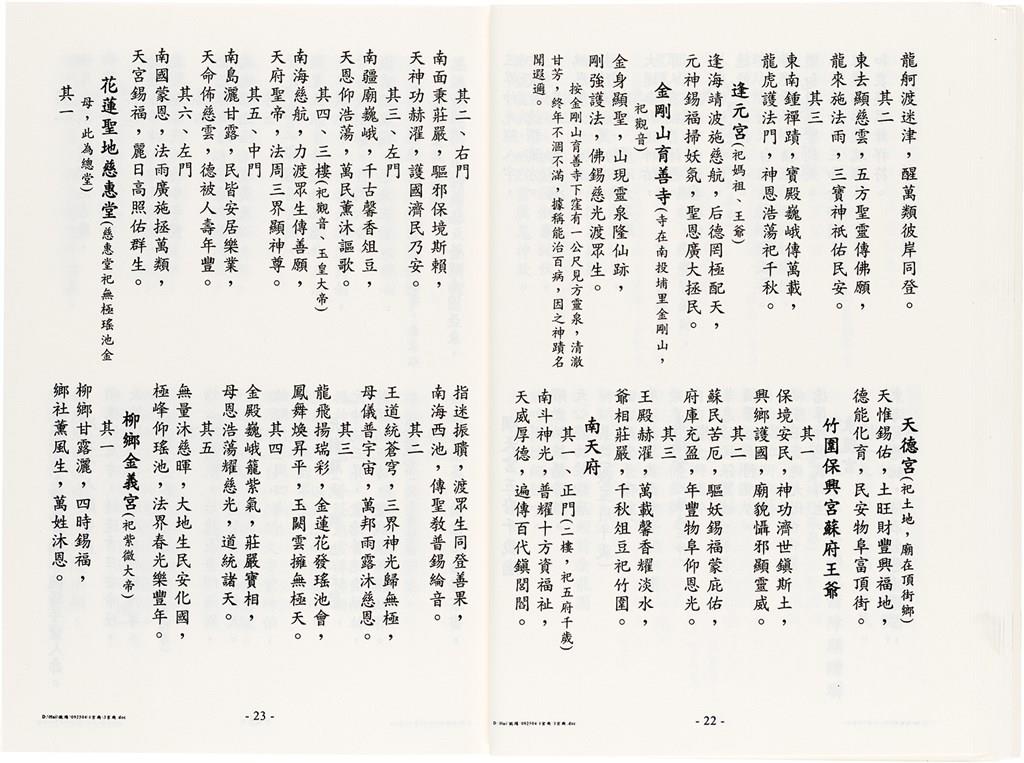 龍舸渡迷津，醒萬類彼岸同登。
其二
東去顯慈雲，五方聖靈傳佛願，
龍來施法雨，三寶神祇佑民安。
其三
東南鍾禪蹟，寶殿巍峨傳萬載，
龍虎護法門，神恩浩蕩祀千秋。
逢元宮(祀媽祖、王爺)
逢海靖波施慈航，后德罔極配天，
元神錫福掃妖氛，聖恩廣大拯民。
金剛山育善寺(寺在南投埔里金剛山，
祀觀音)
金身顯聖，山現靈泉隆仙跡，
剛強護法，佛錫慈光渡眾生。
按金剛山育善寺下窪有一公尺見方靈泉，清澈
甘芳，終年不涸不滿，據稱能治百病，因之神蹟名
聞遐邇。
天德宮(祀土地，廟在頂街鄉)
天惟錫佑，土旺財豐興福地，
德能化育，民安物阜富頂街。
竹圍保興宮蘇府王爺
其一
保境安民，神功濟世鎮斯土，
興鄉護國，廟貌懾邪顯靈威。
其二
蘇民苦厄，驅妖錫福蒙庇佑，
府庫充盈，年豐物阜仰恩光。
其三
王殿赫濯，萬載馨香耀淡水，
爺相莊嚴，千秋俎豆祀竹圍。
南天府
其一、正門(二樓，祀五府千歲)
南斗神光，普耀十方資福祉，
天威厚德，遍傳百代鎮閭閻。
- 22 -
其二、右門
南面秉莊嚴，驅邪保境斯賴，
天神功赫濯，護國濟民乃安。
其三、左門
南疆廟巍峨，千古馨香俎豆，
天恩仰浩蕩，萬民薰沐謳歌。
其四、三樓(祀觀音、玉皇大帝)
南海慈航，力渡眾生傳善願，
天府聖帝，法周三界顯神尊。
其五、中門
南島灑甘露，民皆安居樂業，
天命佈慈雲，德被人壽年豐。
其六、左門
南國蒙恩，法雨廣施拯萬類，
天宮錫福，麗日高照佑群生。
花蓮聖地慈惠堂(慈惠堂祀無極瑤池金
母，此為總堂)
其一
指迷振聵，渡眾生同登善果，
南海西池，傳聖教普錫綸音。
其二
王道統蒼穹，三界神光歸無極，
母儀普宇宙，萬邦雨露沐慈恩。
其三
龍飛揚瑞彩，金蓮花發瑤池會，
鳳舞煥昇平，玉闕雲擁無極天。
其四
金殿巍峨籠紫氣，莊嚴寶相，
母恩浩蕩耀慈光，道統諸天。
其五
無量沐慈暉，大地生民安化國，
極峰仰瑤池，法界春光樂豐年。
柳鄉金義宮(祀紫微大帝)
其一
柳鄉甘露灑，四時錫福，
鄉社薰風生，萬姓沐恩。
- 23 -